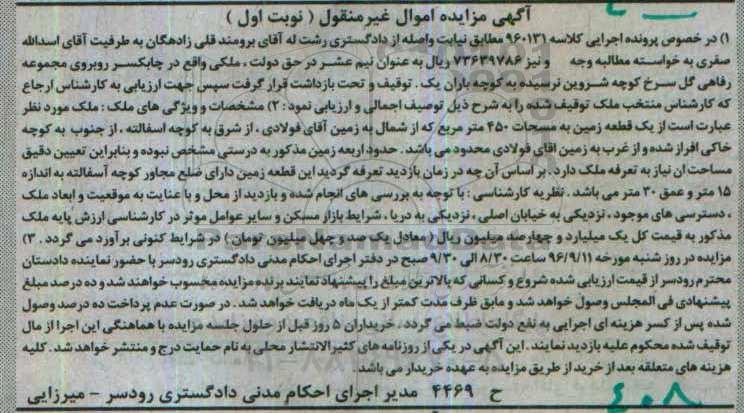 آگهی مزایده اموال غیرمنقول ( نوبت اول )
۱) در خصوص پرونده اجرایی کلاسه ۹۶۰۱۳۱ مطابق نیابت واصله از دادگستری رشت له آقای برومند قلی زادهگان به طرفیت آقای اسدالله
صفری به خواسته مطالبه وجه و نیز ۷۳۶۳۹۷۸۶ ریال به عنوان نیم عشر در حق دولت ، ملکی واقع در چابکسر روبروی مجموعه
رفاهی گل سرخ کوچه شروین نرسیده به کوچه باران یک . توقیف و تحت بازداشت قرار گرفت سپس جهت ارزیابی به کارشناس ارجاع
که کارشناس منتخب ملک توقیف شده را به شرح ذیل توصیف اجمالی و ارزیابی نمود : ۲) مشخصات و ویژگی های ملک : ملک مورد نظر
عبارت است از یک قطعه زمین به مساحت ۴۵۰ متر مربع که از شمال به زمین آقای فولادی ، از شرق به کوچه اسفالته ، از جنوب به کوچه
خاکی افراز شده و از غرب به زمین اقای فولادی محدود می باشد . حدود اربعه زمین مذکور به درستی مشخص نبوده و بنابراین تعیین دقیق
مساحت ان نیاز به تعرفه ملک دارد . بر اساس آن چه در زمان بازدید تعرفه گردید این قطعه زمین دارای ضلع مجاور کوچه آسفالته به اندازه
۱۵ متر و عمق ۳۰ متر می باشد . نظریه کارشناسی : با توجه به بررسی های انجام شده و بازدید از محل و با عنایت به موقعیت و ابعاد ملک
، دسترسی های موجود ، نزدیکی به خیابان اصلی ، نزدیکی به دریا ، شرایط بازار مسکن و سایر عوامل موثر در کارشناسی ارزش پایه ملک
مذکور به قیمت کل یک میلیارد و چهارصد میلیون ریال ( معادل یک صد و چهل میلیون تومان ) در شرایط کنونی برآورد می گردد . ۳)
مزایده در روز شنبه مورخه ۹۶/۹/۱۱ ساعت ۸/۳۰ الی ۹/۳۰ صبح در دفتر اجرای احکام مدنی دادگستری رودسر با حضور نماینده دادستان
محترم رودسر از قیمت ارزیابی شده شروع و کسانی که بالاترین مبلغ را پیشنهاد نمایند برنده مزایده محسوب خواهند شد و ده درصد مبلغ
پیشنهادی فی المجلس وصول خواهد شد و مابق ظرف مدت کمتر از یک ماه دریافت خواهد شد . در صورت عدم پرداخت ده درصد وصول
شده پس از کسر هزینه ای اجرایی به نفع دولت ضبط می گردد . خریداران ۵ روز قبل از حلول جلسه مزایده با هماهنگی این اجرا از مال
توقیف شده محکوم علیه بازدید نمایند . این آگهی در یکی از روزنامه های کثیرالانتشار محلی به نام حمایت درج و منتشر خواهد شد . کلیه
هزینه های متعلقه بعد از خرید از طریق مزایده به عهده خریدار می باشد .
ح ۴۴۶۹ مدیر اجرای احکام مدنی دادگستری رودسر - میرزایی
۴۰۸